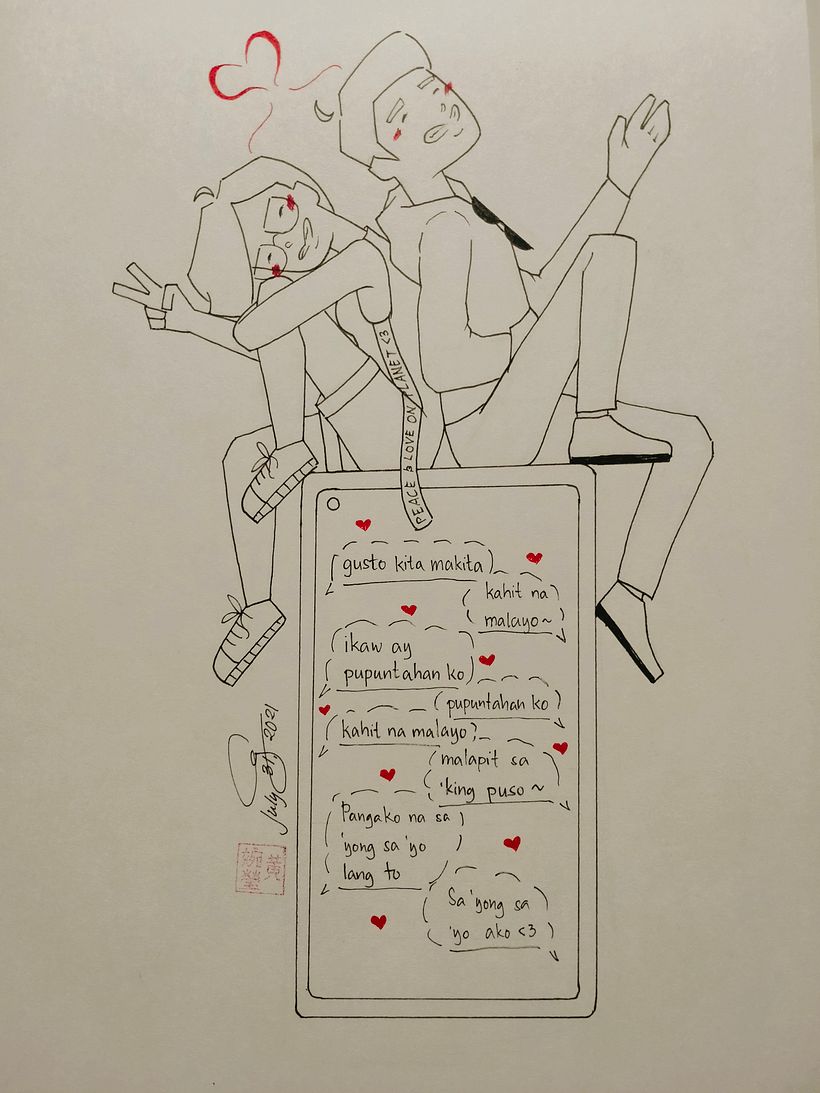 PEACE & LOVE ON PLANET <3
gusto kita makita
kahit na
malayo~
ikaw ay
pupuntahan ko
pupuntahan ko
kahit na malayo
malapit sa
'king puso ~
Pangako na sa
'yong sa 'yo
lang to
Sa 'yong sa
'yo ako <3
July 31, 2021
黄
婉瑩